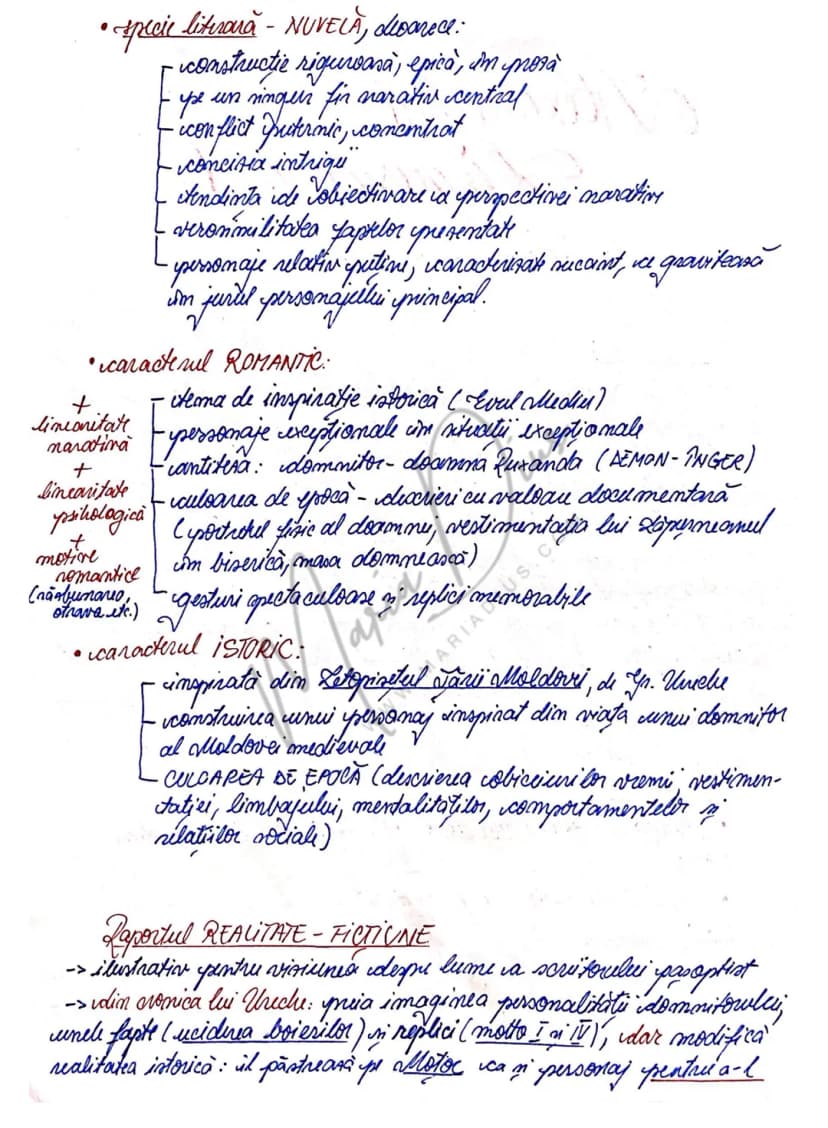 • specie literară - NUVELĂ, deoarece:
- construcție riguroasă, epică, în proză
- pe un singur fir narativ central
- conflict puternic, concentrat
- concizia intrigii
- tendința de obiectivare a perspectivei narative
- verosimilitatea faptelor prezentate
- personaje relativ puține, caracterizate succint, ce gravitează
în jurul personajului principal.
• caracterul ROMANTIC:
- tema de inspirație istorică (Evul Mediu)
- personaje excepționale în situații excepționale
- antiteza: domnitor - doamna Ruxanda (DEMON - ÎNGER)
- culoarea de epocă - descrieri cu valoare documentară
(portretul fizic al doamnei, vestimentația lui Lăpușneanul
în biserică, masa domnească)
- gesturi spectaculoase și replici memorabile
+
liniaritate
narativă
+
liniaritate
psihologică
+
motive
romantice
(răzbunarea,
otrava etc.)
• caracterul ISTORIC:
- inspirată din Letopisețul Țării Moldovei, de Gr. Ureche
- construirea unui personaj inspirat din viața unui domnitor
al Moldovei medievale
- CULOAREA DE EPOCĂ (descrierea obiceiurilor vremii, vestimen-
tației, limbajului, mentalităților, comportamentelor și
relațiilor sociale)
Raportul REALITATE - FICȚIUNE
-> ilustrativ pentru viziunea despre lume a scriitorului pașoptist
-> din cronica lui Ureche: preia imaginea personalității domnitorului,
unele fapte (uciderea boierilor) și replici (motto I și IV), dar modifică
realitatea istorică: îl păstrează pe Moțoc ca și personaj pentru a-l
Maria Dius
WWW.MARIADIUS.COM